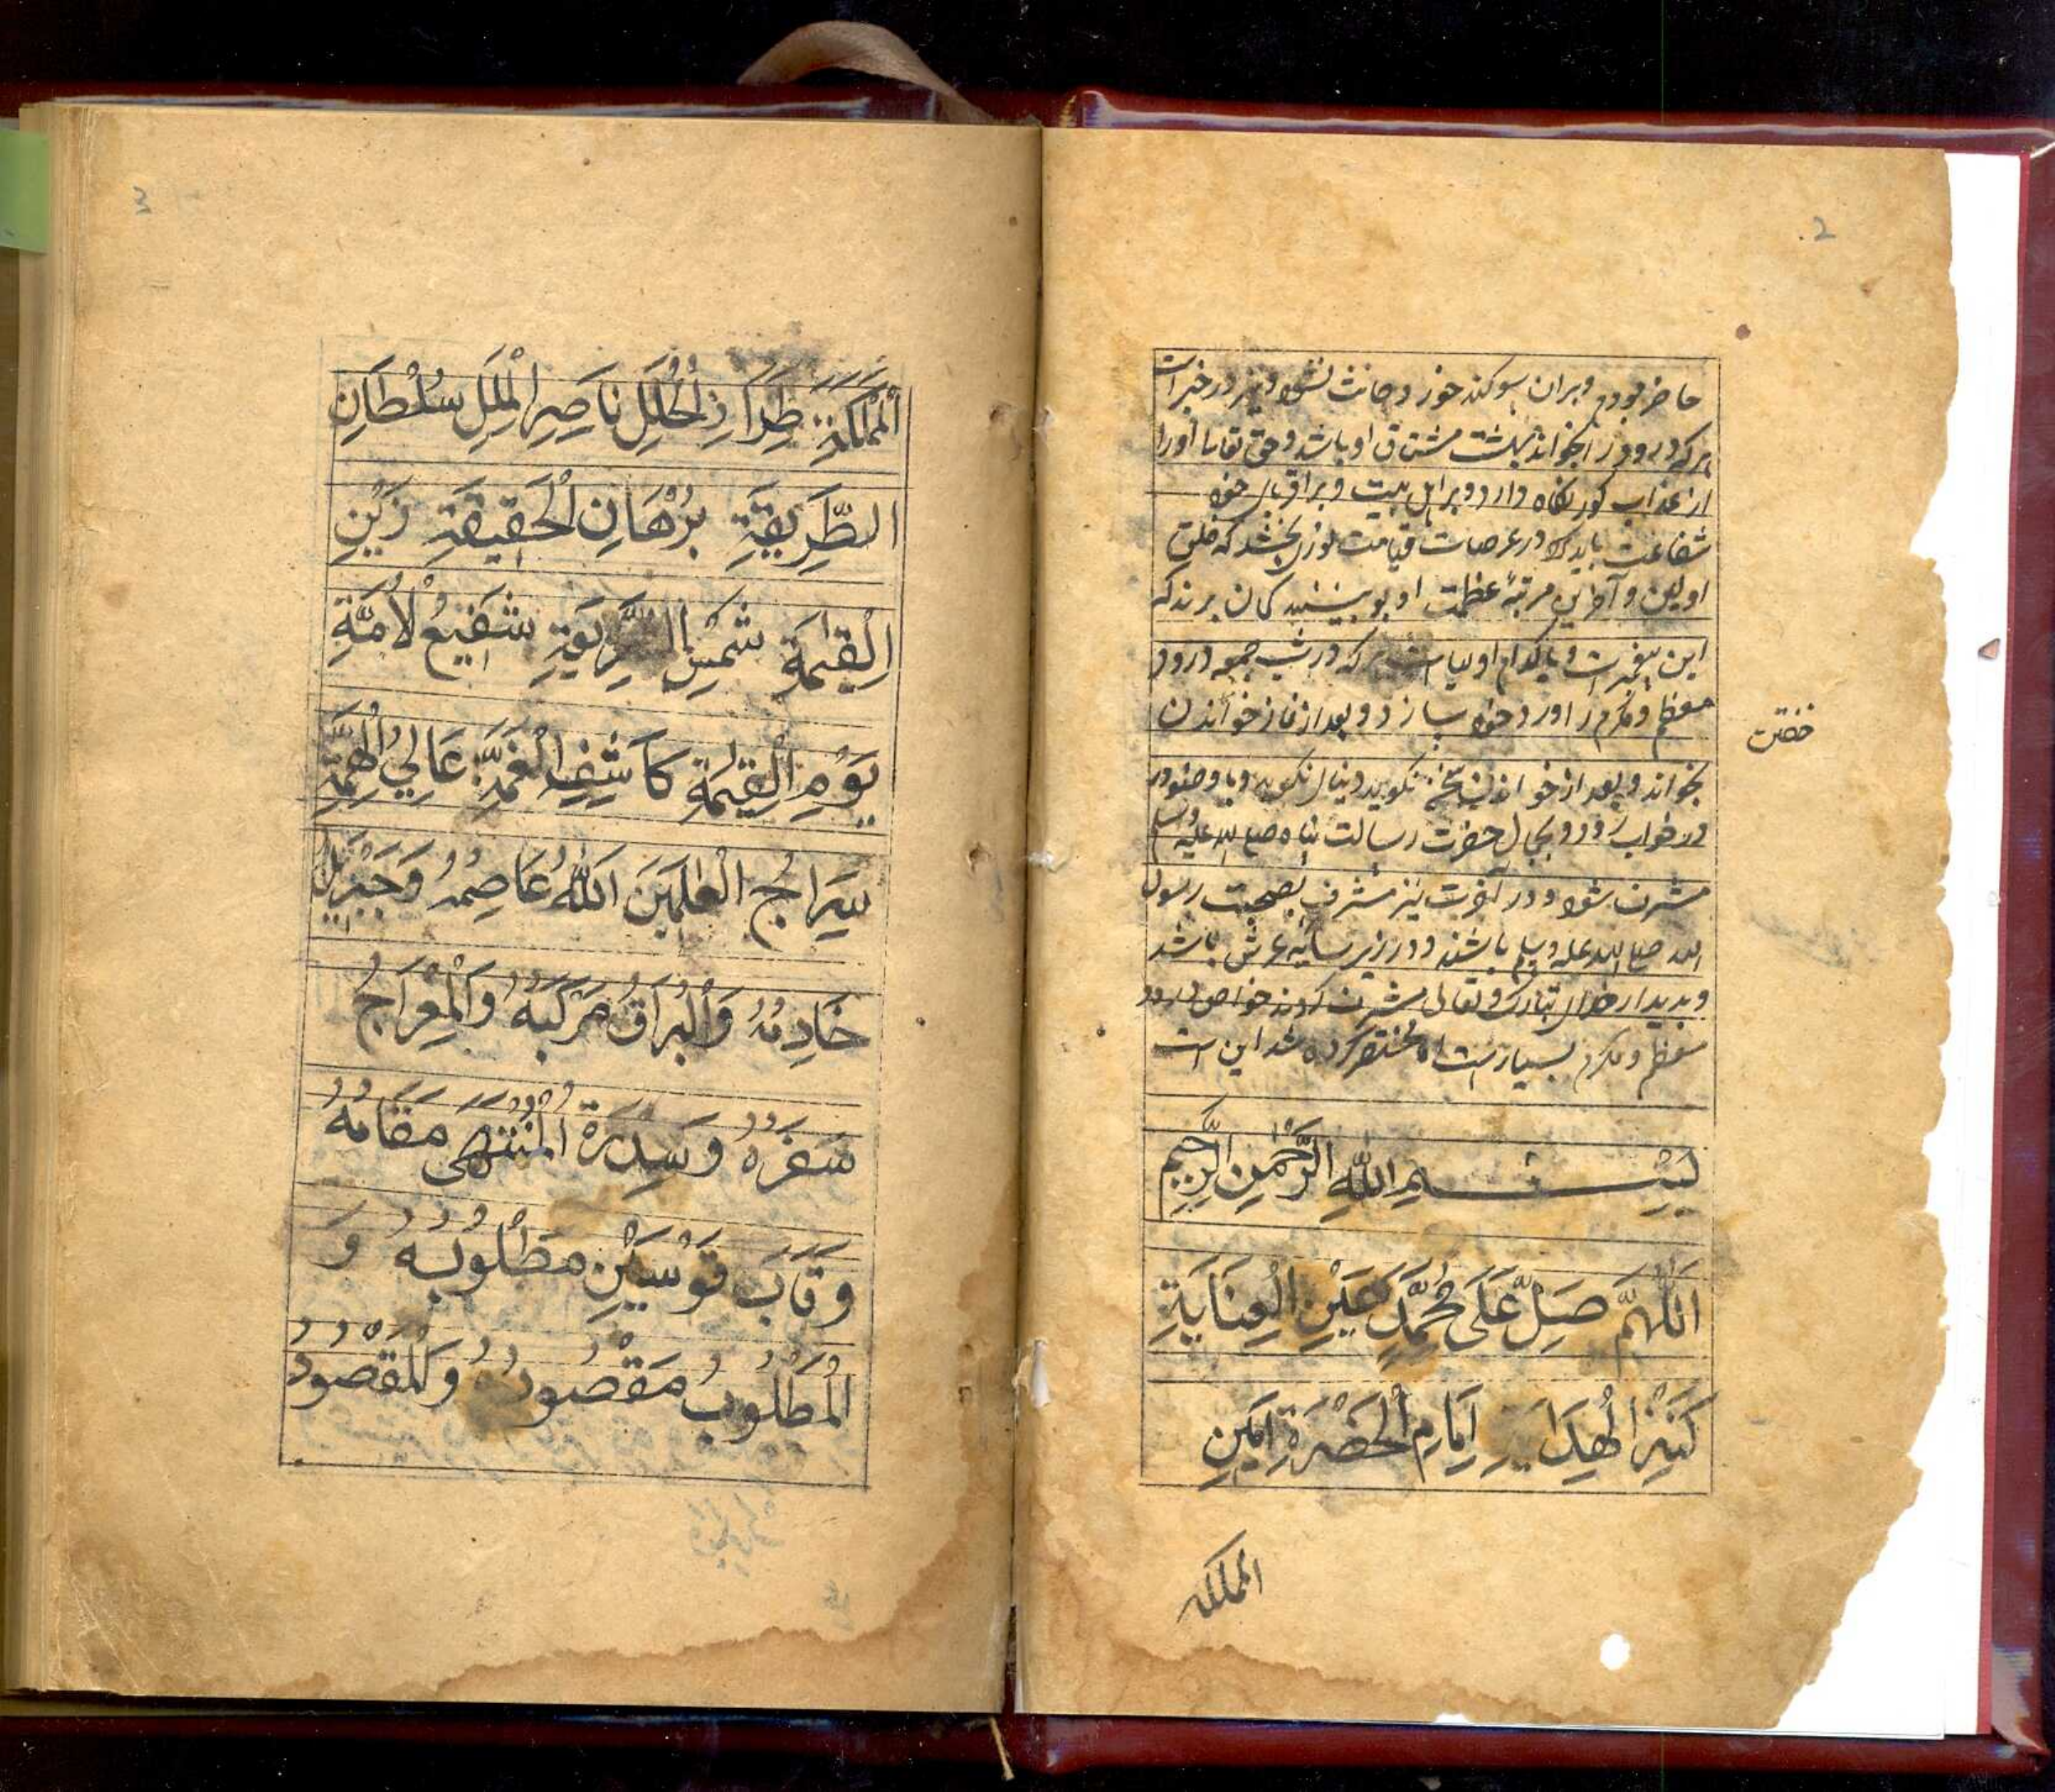 2
حاضر بودم و بران سوکند خورد حانث نشود و نیز در خبر است
هر که درود را بخواند بهشت مشتاق او باشد و حق تعالی اورا
از عذاب کور نکاه دارد و بر اهل بیت و بر اقربای خود
شفاعت یابد که در عرصات قیامت نورش بخشد که خلق
اولین و آخرین مرتبهٔ عظمت او بو بینند کمان برند که
این پیغمبرست و یا کدام اولیا است هر که در شب جمعه درود
معظم و مکرم را ورد خود سازد و بعد از نماز خواندن
خفتن
بخواند و بعد از خواندن سخن نکوید و بنال نکوید و با وضو در
در خواب رود و بجمال حضرت رسالت پناه صلی الله علیه وسلم
مشرف شود و در آخرت نیز مشرف بصحبت رسول
الله صلی الله علیه وسلم باشند و در زیر سایه عرش باشد
و بدیدار خدای تبارک و تعالی مشرف کردند خواص درود
معظم و مکرم بسیار است اما مختصر کرده شد این است
بِسْمِ اللّٰهِ الرَّحْمٰنِ الرَّحِيمِ
اَللّٰهُمَّ صَلِّ عَلَى مُحَمَّدٍ عَيْنِ الْعِنَايَةِ
كَنْزِ الْهِدَايَةِ اِمَامِ الْحَضْرَةِ اَمِينِ
المملكة
3
الْمَمْلَكَةِ طِرَازِ الْحُلَلِ نَاصِرِ الْمِلَلِ سُلْطَانِ
الطَّرِيقَةِ بُرْهَانِ الْحَقِيقَةِ زَيْنِ
الْقِيٰمَةِ شَمْسِ الشَّرِيعَةِ شَفِيعُ الْاُمَّةِ
يَوْمِ الْقِيٰمَةِ كَاشِفِ الْغُمَّةِ عَالِي الْهِمَّةِ
سِرَاجُ الْعٰلَمِينَ اَللّٰهُ عَاصِمُهُ وَجَبْرَئِيلُ
خَادِمُهُ وَالْبُرَاقُ مَرْكَبُهُ وَالْمِعْرَاجُ
سَفَرُهُ وَسِدْرَةُ الْمُنْتَهٰى مَقَامُهُ
وَقَابَ قَوْسَيْنِ مَطْلُوبُهُ وَ
الْمَطْلُوبُ مَقْصُودُهُ وَالْمَقْصُودُ